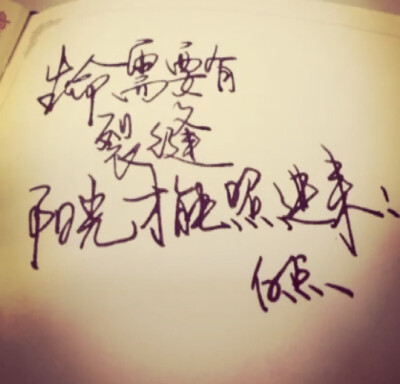 生命需要有
裂缝
阳光才能照进来